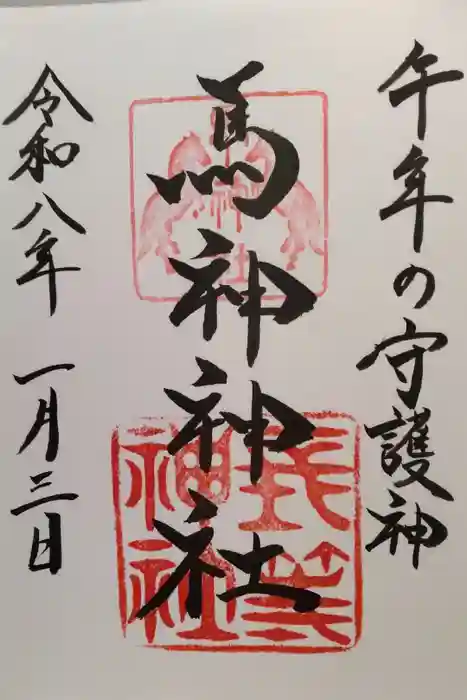 午年の守護神
馬神神社
長等神社
令和八年 一月三日